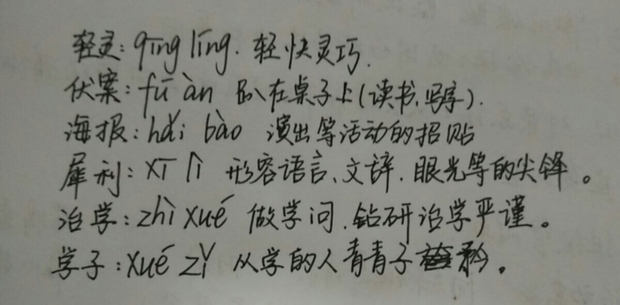 轻灵: qīng líng. 轻快灵巧.
伏案: fú àn 趴在桌子上(读书、写字).
海报: hǎi bào 演出等活动的招贴
犀利: xī lì 形容语言、文辞、眼光等的尖锋。
治学: zhì xué 做学问、钻研治学严谨。
学子: xué zǐ 从学的人青青子衿。